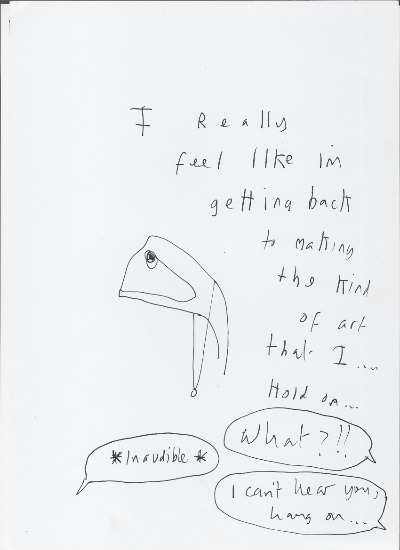 I Really
feel like im
getting back
to making
the kind
of art
that I....
Hold on...
What?!!
*Inaudible*
I can't hear you,
hang on...